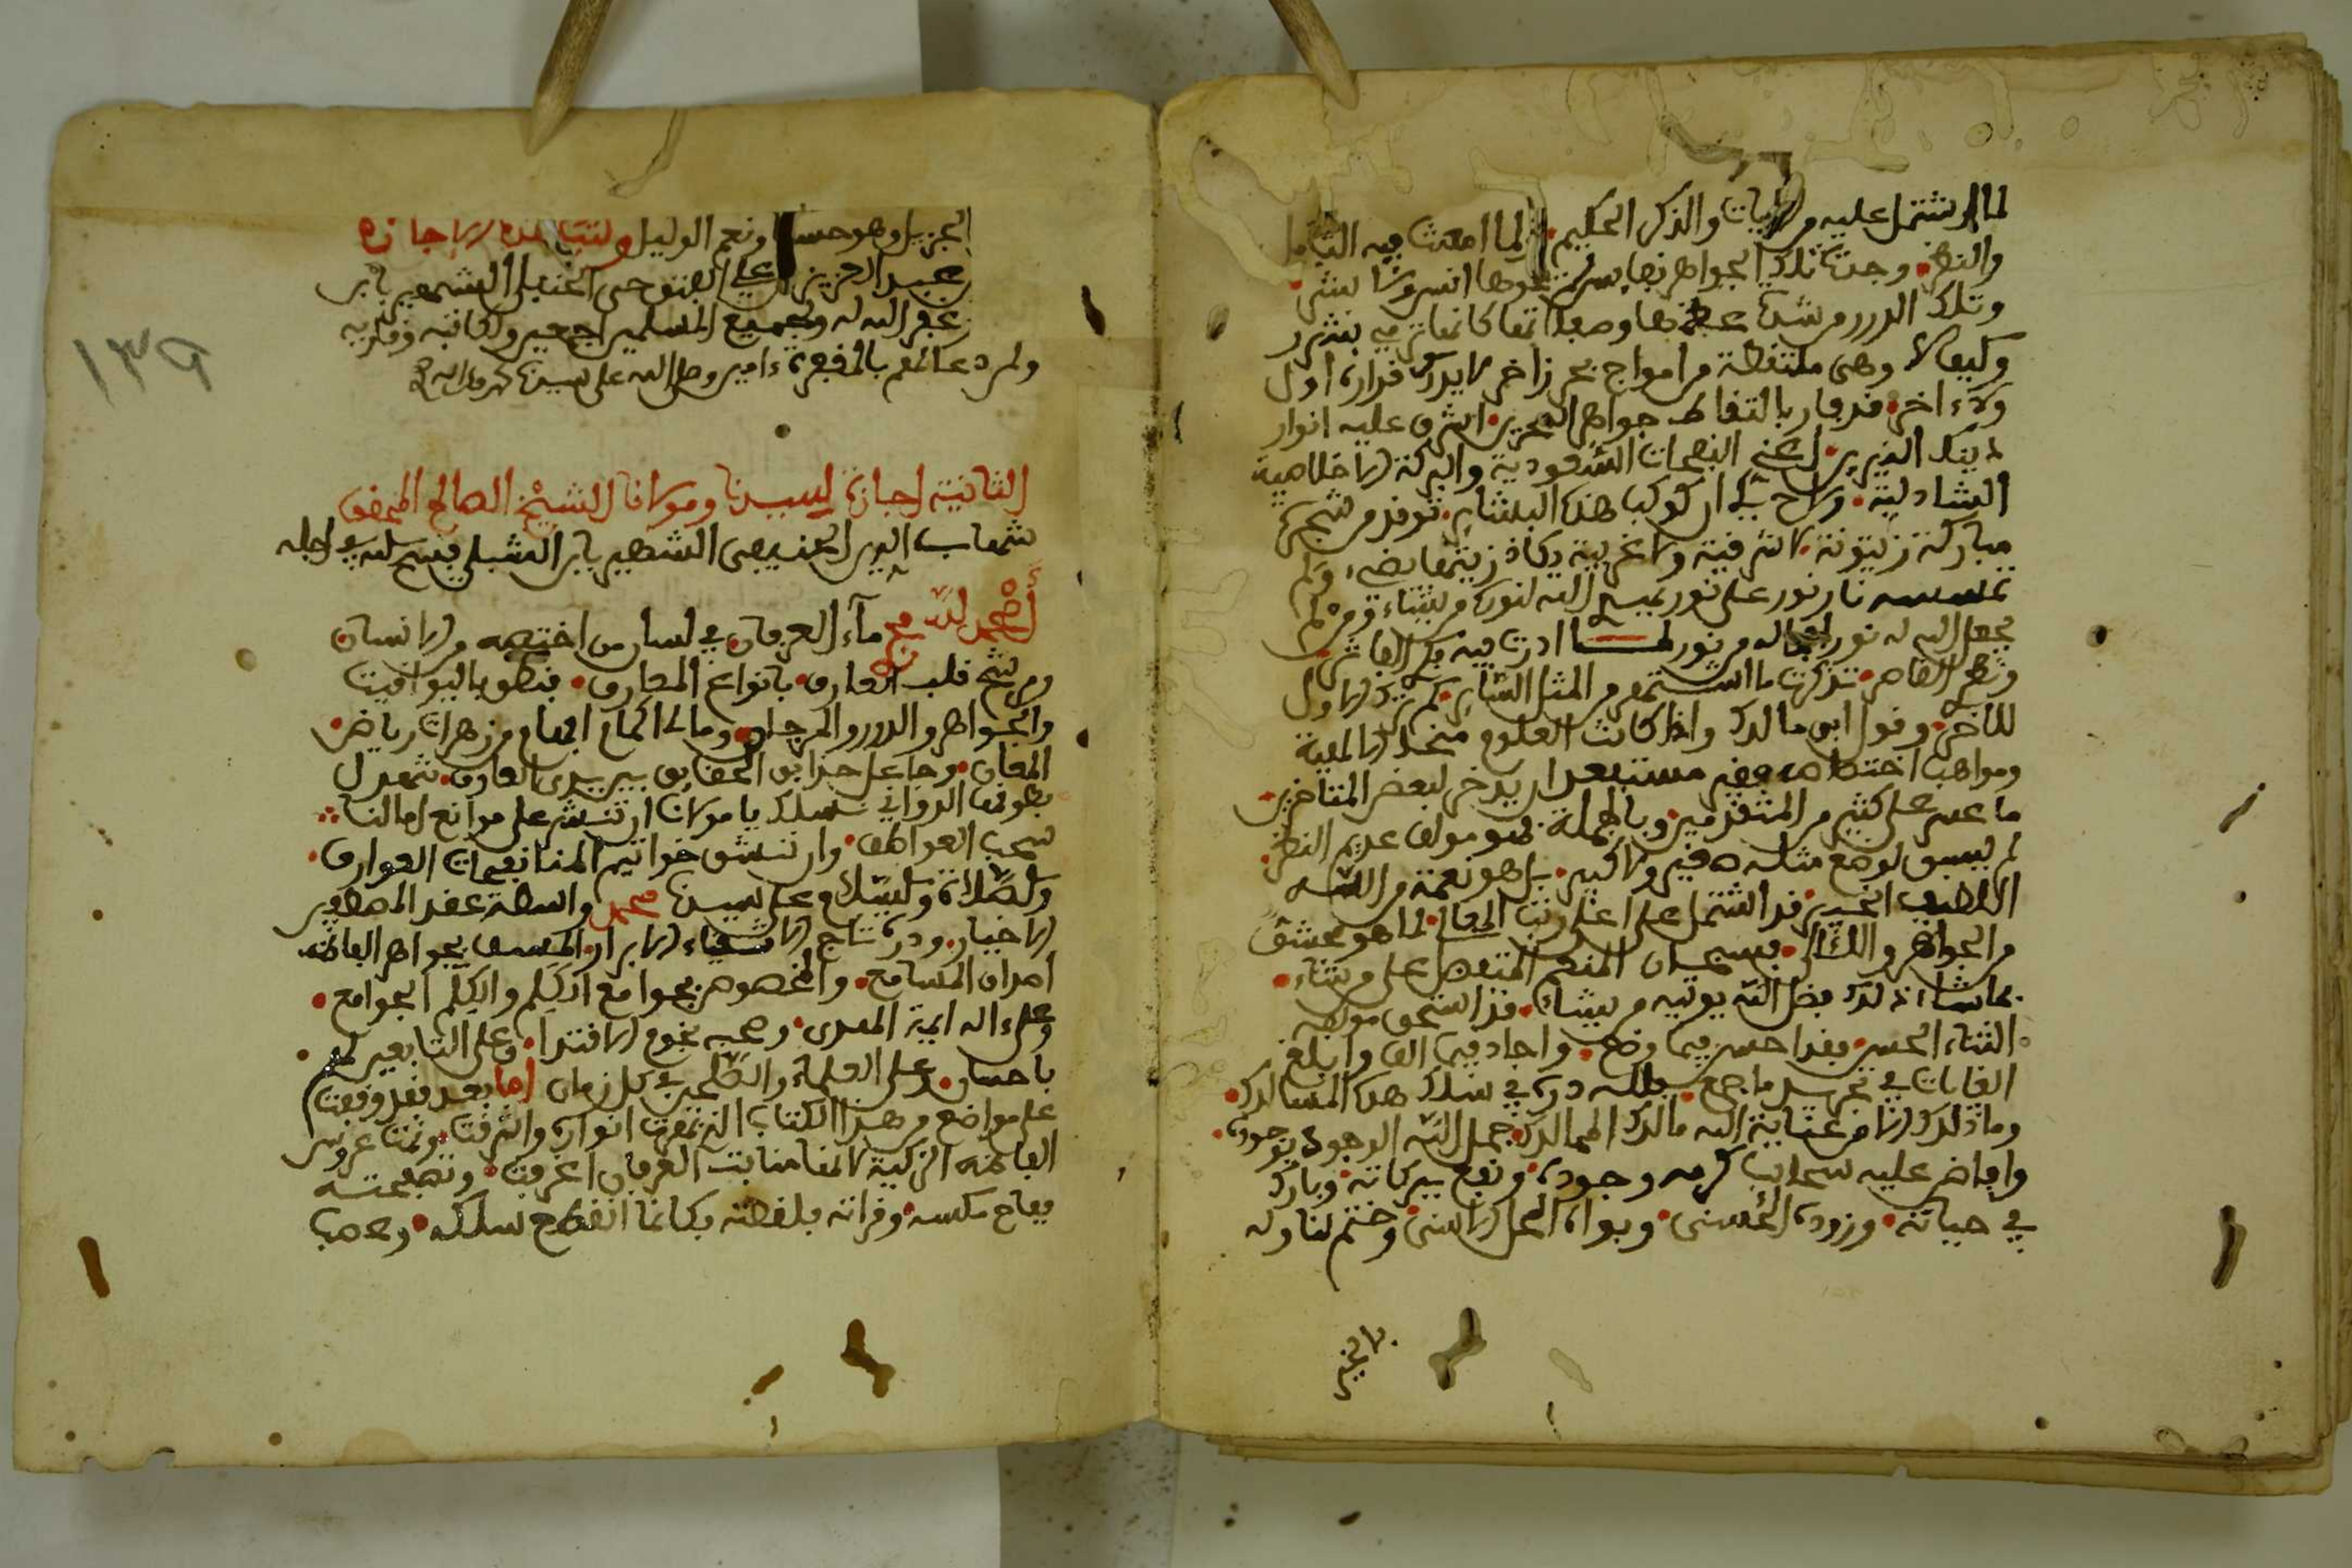 لما اشتمل عليه من الايات والذكر الحكيم لما امعنت فيه التامل
والنظر وجدت تلك الجواهر نفايس لم يحوها انس ولا بشر
وتلك الدرر من شدة عظمها وصفاتها كانها ترمي بشرر
وكيف لا وهي ملتقطة من امواج بحر زاخر لا يدرك قراره اول
ولا ءاخر قد فاز بالتقاط جواهر البحرين اشرق عليه انوار
ذينك النيرين اعني النفحات السعودية والبركة الاخلاصية
الشاذلية ولاح لي ان كوكب هذه البشاير توقد من شجرة
مباركة زيتونة لا شرقية ولا غربية يكاد زيتها يضيء ولو لم
تمسسه نار نور على نور يهدي الله لنوره من يشاء ومن لم
يجعل الله له نورا فما له من نور لما ادرت فيه فكر الفاتر
ونظر القاصر تذكرت ما اشتهر من المثل الساير كم ترك الاول
للاخر وقول ابن مالك واذا كانت العلوم منحا الاهية
ومواهب اختصاصية فغير مستبعد ان يدخر لبعض المتاخرين
ما عسر على كثير من المتقدمين وبالجملة فهو مولف عديم النظر
لم يسبق لوضع مثله صغير ولا كبير بل هو نعمة من الله
اللطيف الخبير قد اشتمل على اعلى رتب المعالي لما هو محشو
من الجواهر واللئالي فسبحان المنعم المتفضل على من يشاء
بما شاء ذلك فضل الله يوتيه من يشاء قد استحق مولفه
الثناء الحسن فقد احسن فيما وضع واجاد فيما الف وابلغ
الغايات في تحرير ما جمع فلله دره في سلك هذه المسالك
وما ذلك الا من عناية الله مالك الممالك جمل الله الوجود بوجوده
وافاض عليه سحايب كرمه وجوده ونفع ببركاته وبارك
في حياته وزوده الحسنى وبواه المحل الاسنى وختم لنا وله
بالخير
الجزيل وهو حسبنا ونعم الوكيل وكتب هذه الاجازة
عبد العزيز علي الفتوحي الحنبلي الشهير بابن
غفر الله له ولجميع المسلمين اجمعين ولكاتبه وقاريه
ولمن دعا لهم بالمغفرة ءامين وصلى الله على سيدنا محمد وءاله
١٣٩
الثانية اجازة لسيدنا ومولانا الشيخ الصالح المحقق
شهاب الدين الحنفي الشهير بابن الشبلي فسح الله في اجله
احمد لله مج ماء العرفان في لسان من اختصه من الانسان
ومرشح قلب العارف بانواع المعارف فنطق باليواقيت
والجواهر والدرر والمرجان ومالئ اكمام افهام من زهرات رياض
المعاني وجاعل حدايق الحقايق بين يدي العارف تهدل
بطوفها الدواني نسلك يا مولانا ان تنشر على مواتع امالنا
سحب العواطف وان تنشق خواتيم المنا نفحات العوارف
والصلاة والسلام على سيدنا محمد واسطة عقد المصطفين
الاخيار ودرة تاج الاصفياء الابرار المسقف بجواهر الفاظه
اصداف المسامع والمخصوص بجوامع الكلم والكلم الجوامع
وعلى ءاله ايمة الهدى وصحبه نجوم الاقتدا وعلى التابعين لهم
باحسان وعلى العلماء والصالحين في كل زمان اما بعد فقد وقفت
على مواضع من هذا الكتاب الذي بهرت انواره واشرقت ونمت عروس
الفاظه الزكية لانها منابت العرفان اغرقت وتصفحته
ففاح مسكه وقراته بلفظه فكانما انقطع سلكه وعصب